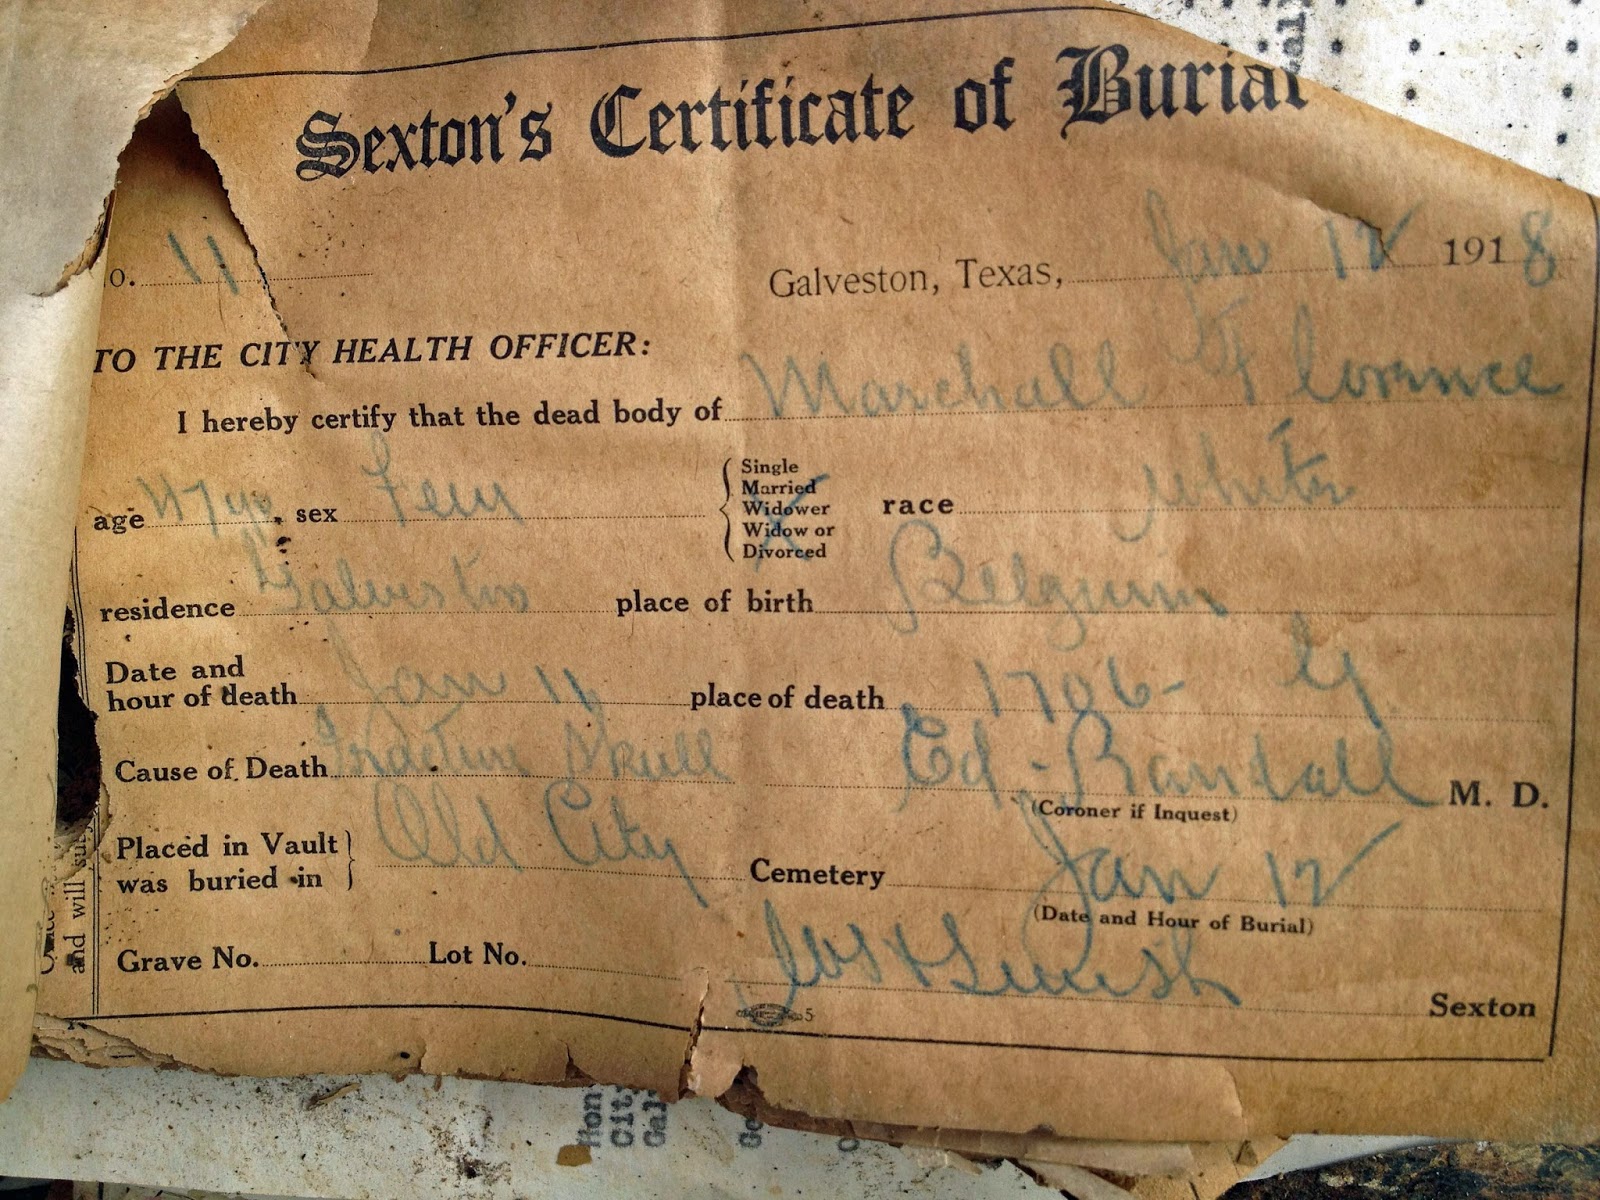 Sexton's Certificate of Burial
o. 11 Galveston, Texas, Jan 12 1918
TO THE CITY HEALTH OFFICER:
I hereby certify that the dead body of Marchall Florence
age 47 yrs. sex Fem Single Married Widower Widow or Divorced race White
residence Galveston place of birth Belgium
Date and
hour of death Jan 11 place of death 1706- G
Cause of Death Fracture Skull Ed. Randall M. D.
(Coroner if Inquest)
Placed in Vault
was buried in Old City Cemetery Jan 12
(Date and Hour of Burial)
Grave No. Lot No.
Sexton
5
and will
Hon
City
Gal